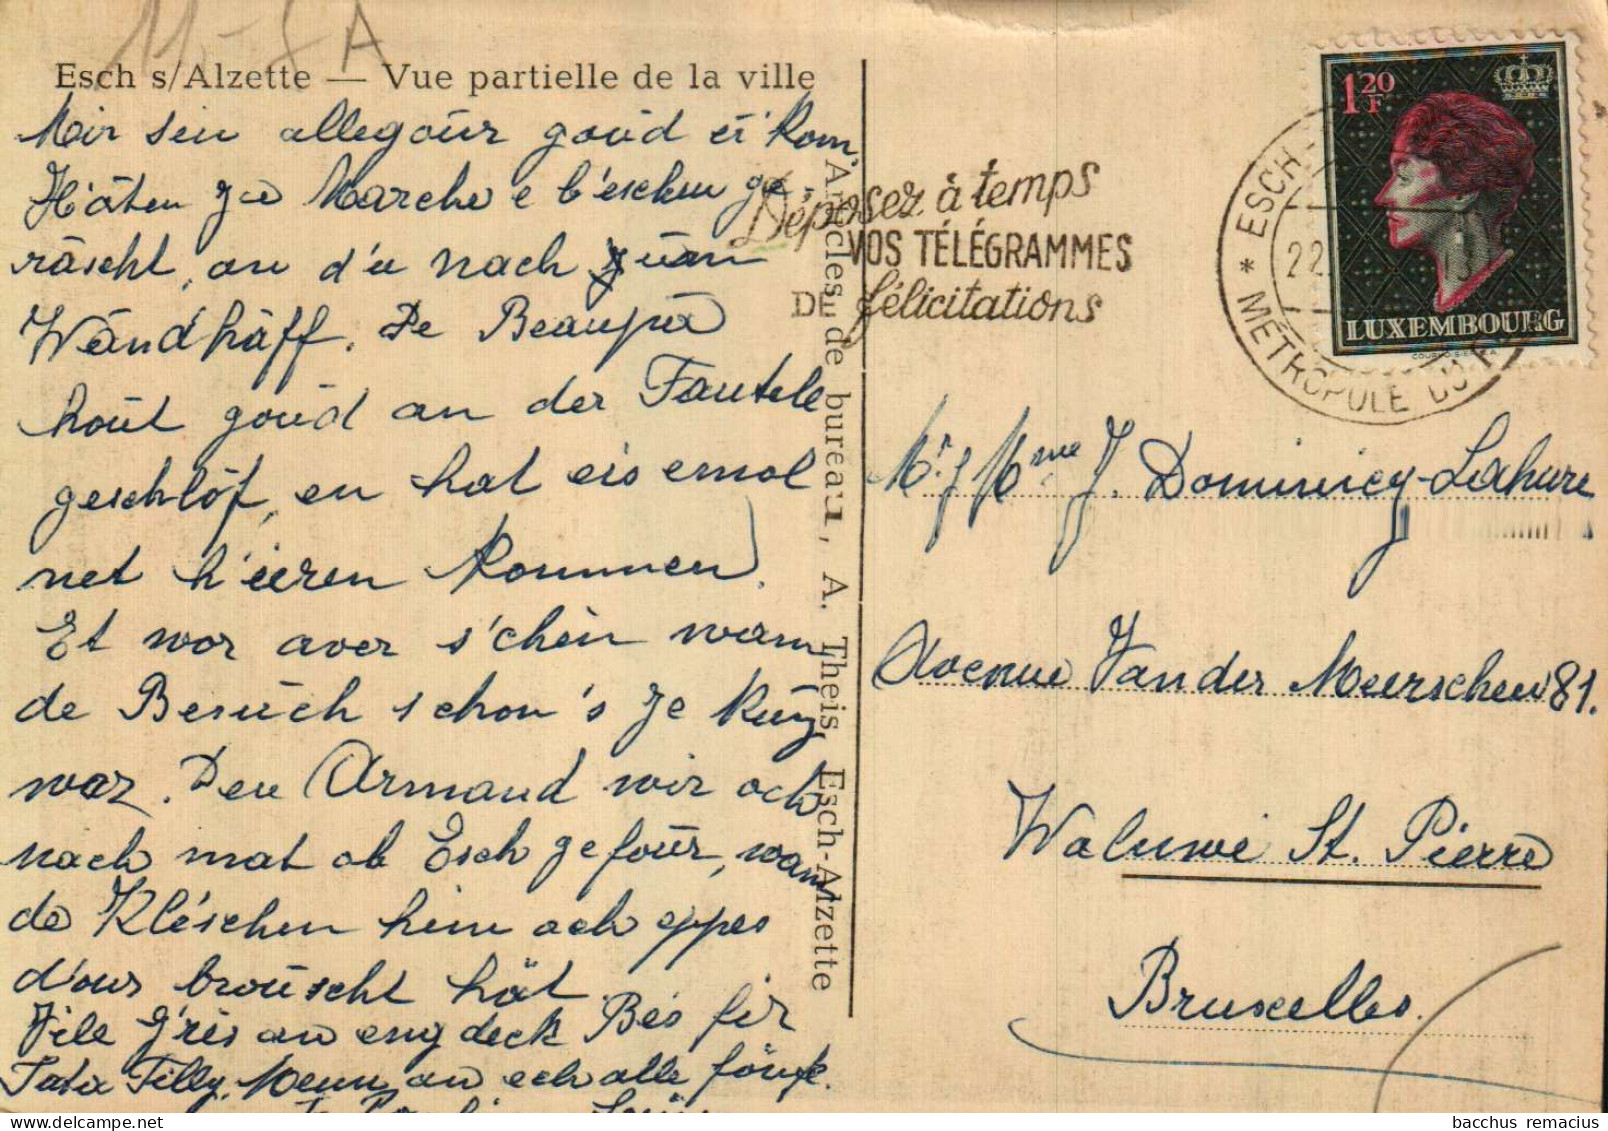 11-8 A
Esch s/Alzette — Vue partielle de la ville
Mir sin allegouer goud ei' kom.
H'aten zu Marche e b'eschen ge
räscht, an d'u nach
Wändhäff. De Beaupère
hout goud an der Fautele
geschlof, en hat eis emol
net h'ieren kommen.
Et wor aver s'chein wann
de Besuch schon's ze kurz
war. Den Armand wir och
nach mat ob Esch gefouer, wann
de Kleschen him och eppes
d'our brouscht hät.
Vile an eng deck Bés fir
Tata Tilly, Menn an ech alle
Articles de bureau, A. Theis, Esch-Alzette
Déposez à temps
VOS TÉLÉGRAMMES
DE félicitations
* ESCH-
22.
MÉTROPOLE DU
1 20 F
LUXEMBOURG
COURVOISIER S.A.
Mr. & Mme J. Dominicy-Lahure
Avenue Van der Meerschen 81.
Waluwe St. Pierre
Bruxelles.
bacchus remacius